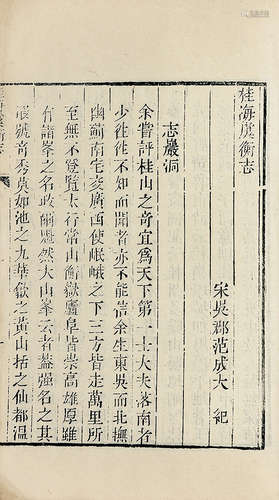 桂海虞衡志
宋吳郡范成大 紀
志巖洞
余嘗評桂山之奇宜爲天下第一士大夫落南者
少往往不知而聞者亦不能信余生東吳而北撫
幽薊南宅交廣西使岷峨之下三方皆走萬里所
至無不登覽太行常山衡嶽廬阜皆崇高雄厚雖
有諸峯之名政爾魁然大山峯云者蓋强名之其
最號奇秀莫如池之九華歙之黃山括之仙都溫